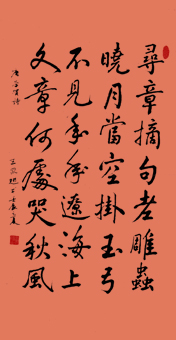 尋章摘句老雕蟲
曉月當空掛玉弓
不見年年遼海上
文章何處哭秋風
唐李賀詩